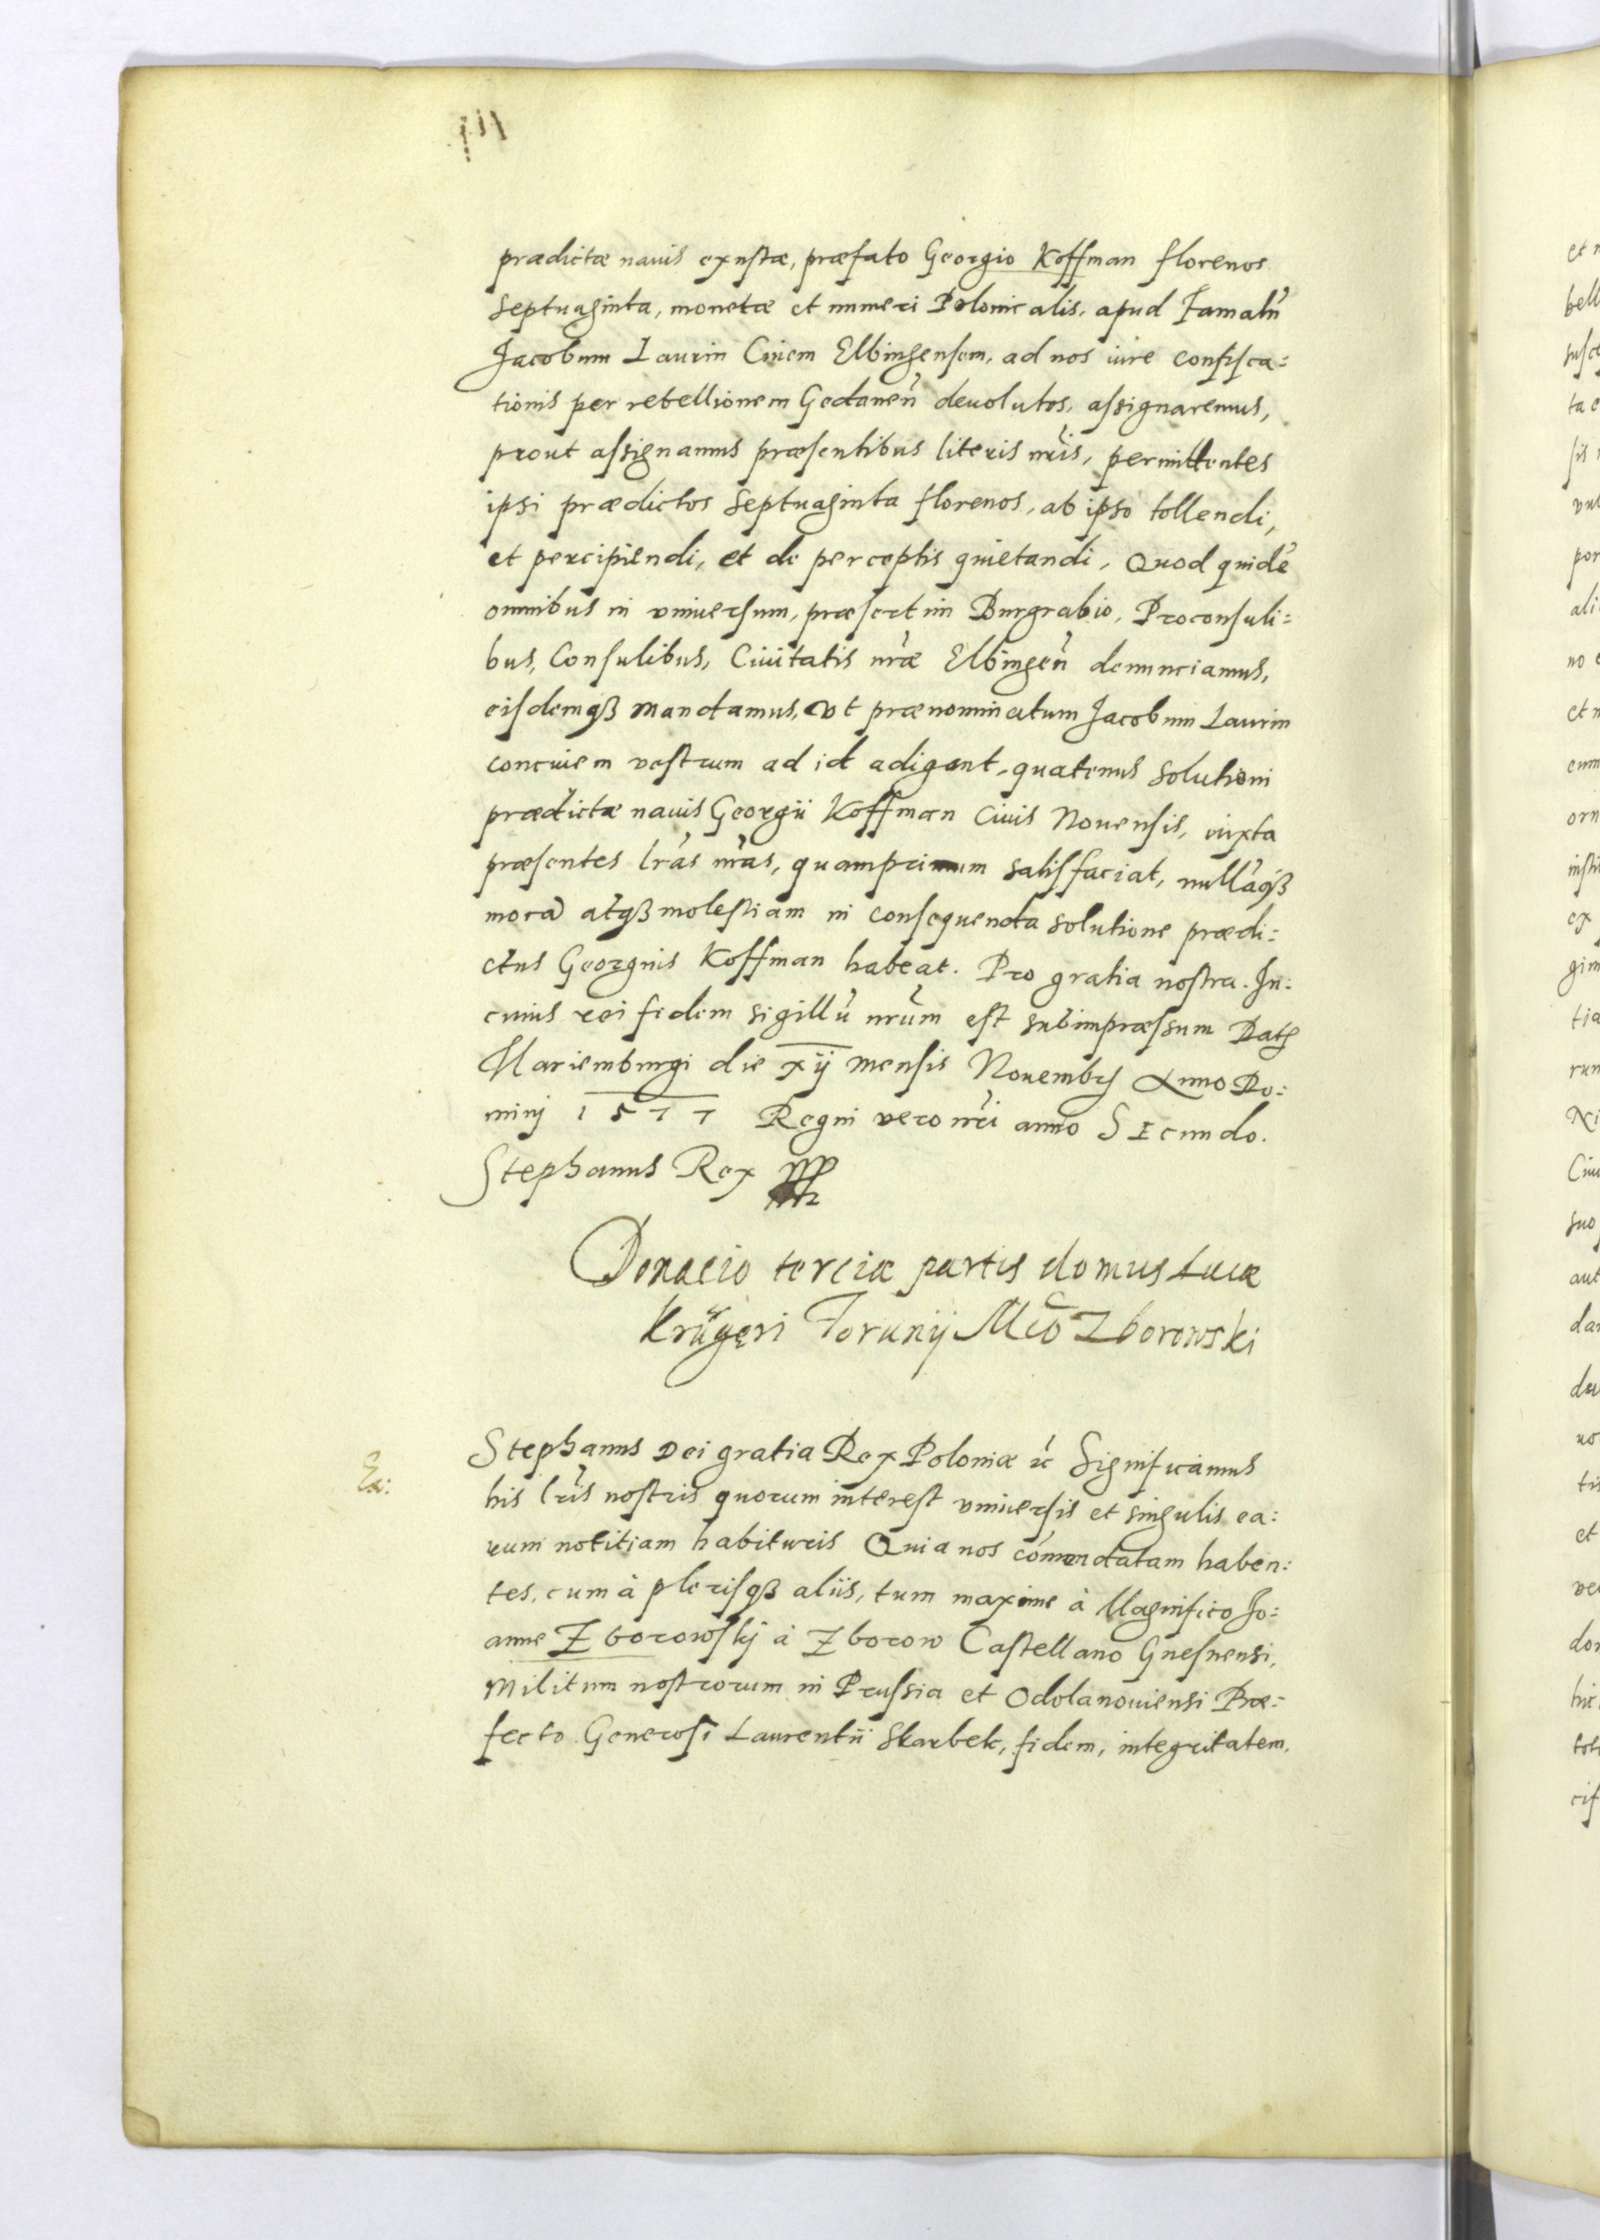 prædictæ nauis exustæ, præfato Georgio Koffman florenos
septuaginta, monetæ et numeri Polonicalis, apud Famatũ
Jacobum Laurin Ciuem Elbingensem, ad nos iure confisca:
tionis per rebellionem Gedaneñ deuolutos, assignaremus,
prout assignamus præsentibus literis nr̃is, permittentes
ipsi prædictos septuaginta florenos, ab ipso tollendi,
et percipiendi, et de perceptis quietandi, Quod quidẽ
omnibus in vniuersum, præsertim Burgrabio, Proconsuli:
bus, Consulibus, Ciuitatis nr̃æ Elbingeñ denunciamus,
eisdemqꝫ mandamus, vt prænominatum Jacobum Laurin
conciuem vestrum ad id adigant, quatenus solutioni
prædictæ nauis Georgii Koffman Ciuis Nouensis, iuxta
præsentes lr̃as nr̃as, quamprimum satisfaciat, nullãqꝫ
morã atqꝫ molestiam in consequenda solutione prædi:
ctus Georgius Koffman habeat. Pro gratia nostra. In:
cuius rei fidem sigillũ nr̃um est subimpræssum Datꝭ
Mariemburgi die xij mensis Nouembrꝭ Anno Do:
minj 1577 Regni vero nr̃i anno Secundo.
Stephanus Rex
Donacio terciæ partis domus Lucæ
Krügeri Torunij Mco Zborowski
Ex:
Stephanus Dei gratia Rex Poloniæ ꝛc Significamus
his lr̃is nostris quorum interest vniuersis et singulis ea:
rum notitiam habituris Quia nos cõmendatam haben:
tes, cum à plerisqꝫ aliis, tum maxime à Magnifico Jo:
anne Zborowskj à Zborow Castellano Gnesnensi,
Militum nostrorum in Prussia et Odolanouiensi Præ:
fecto Generosi Laurentii Skarbek, fidem, integritatem,